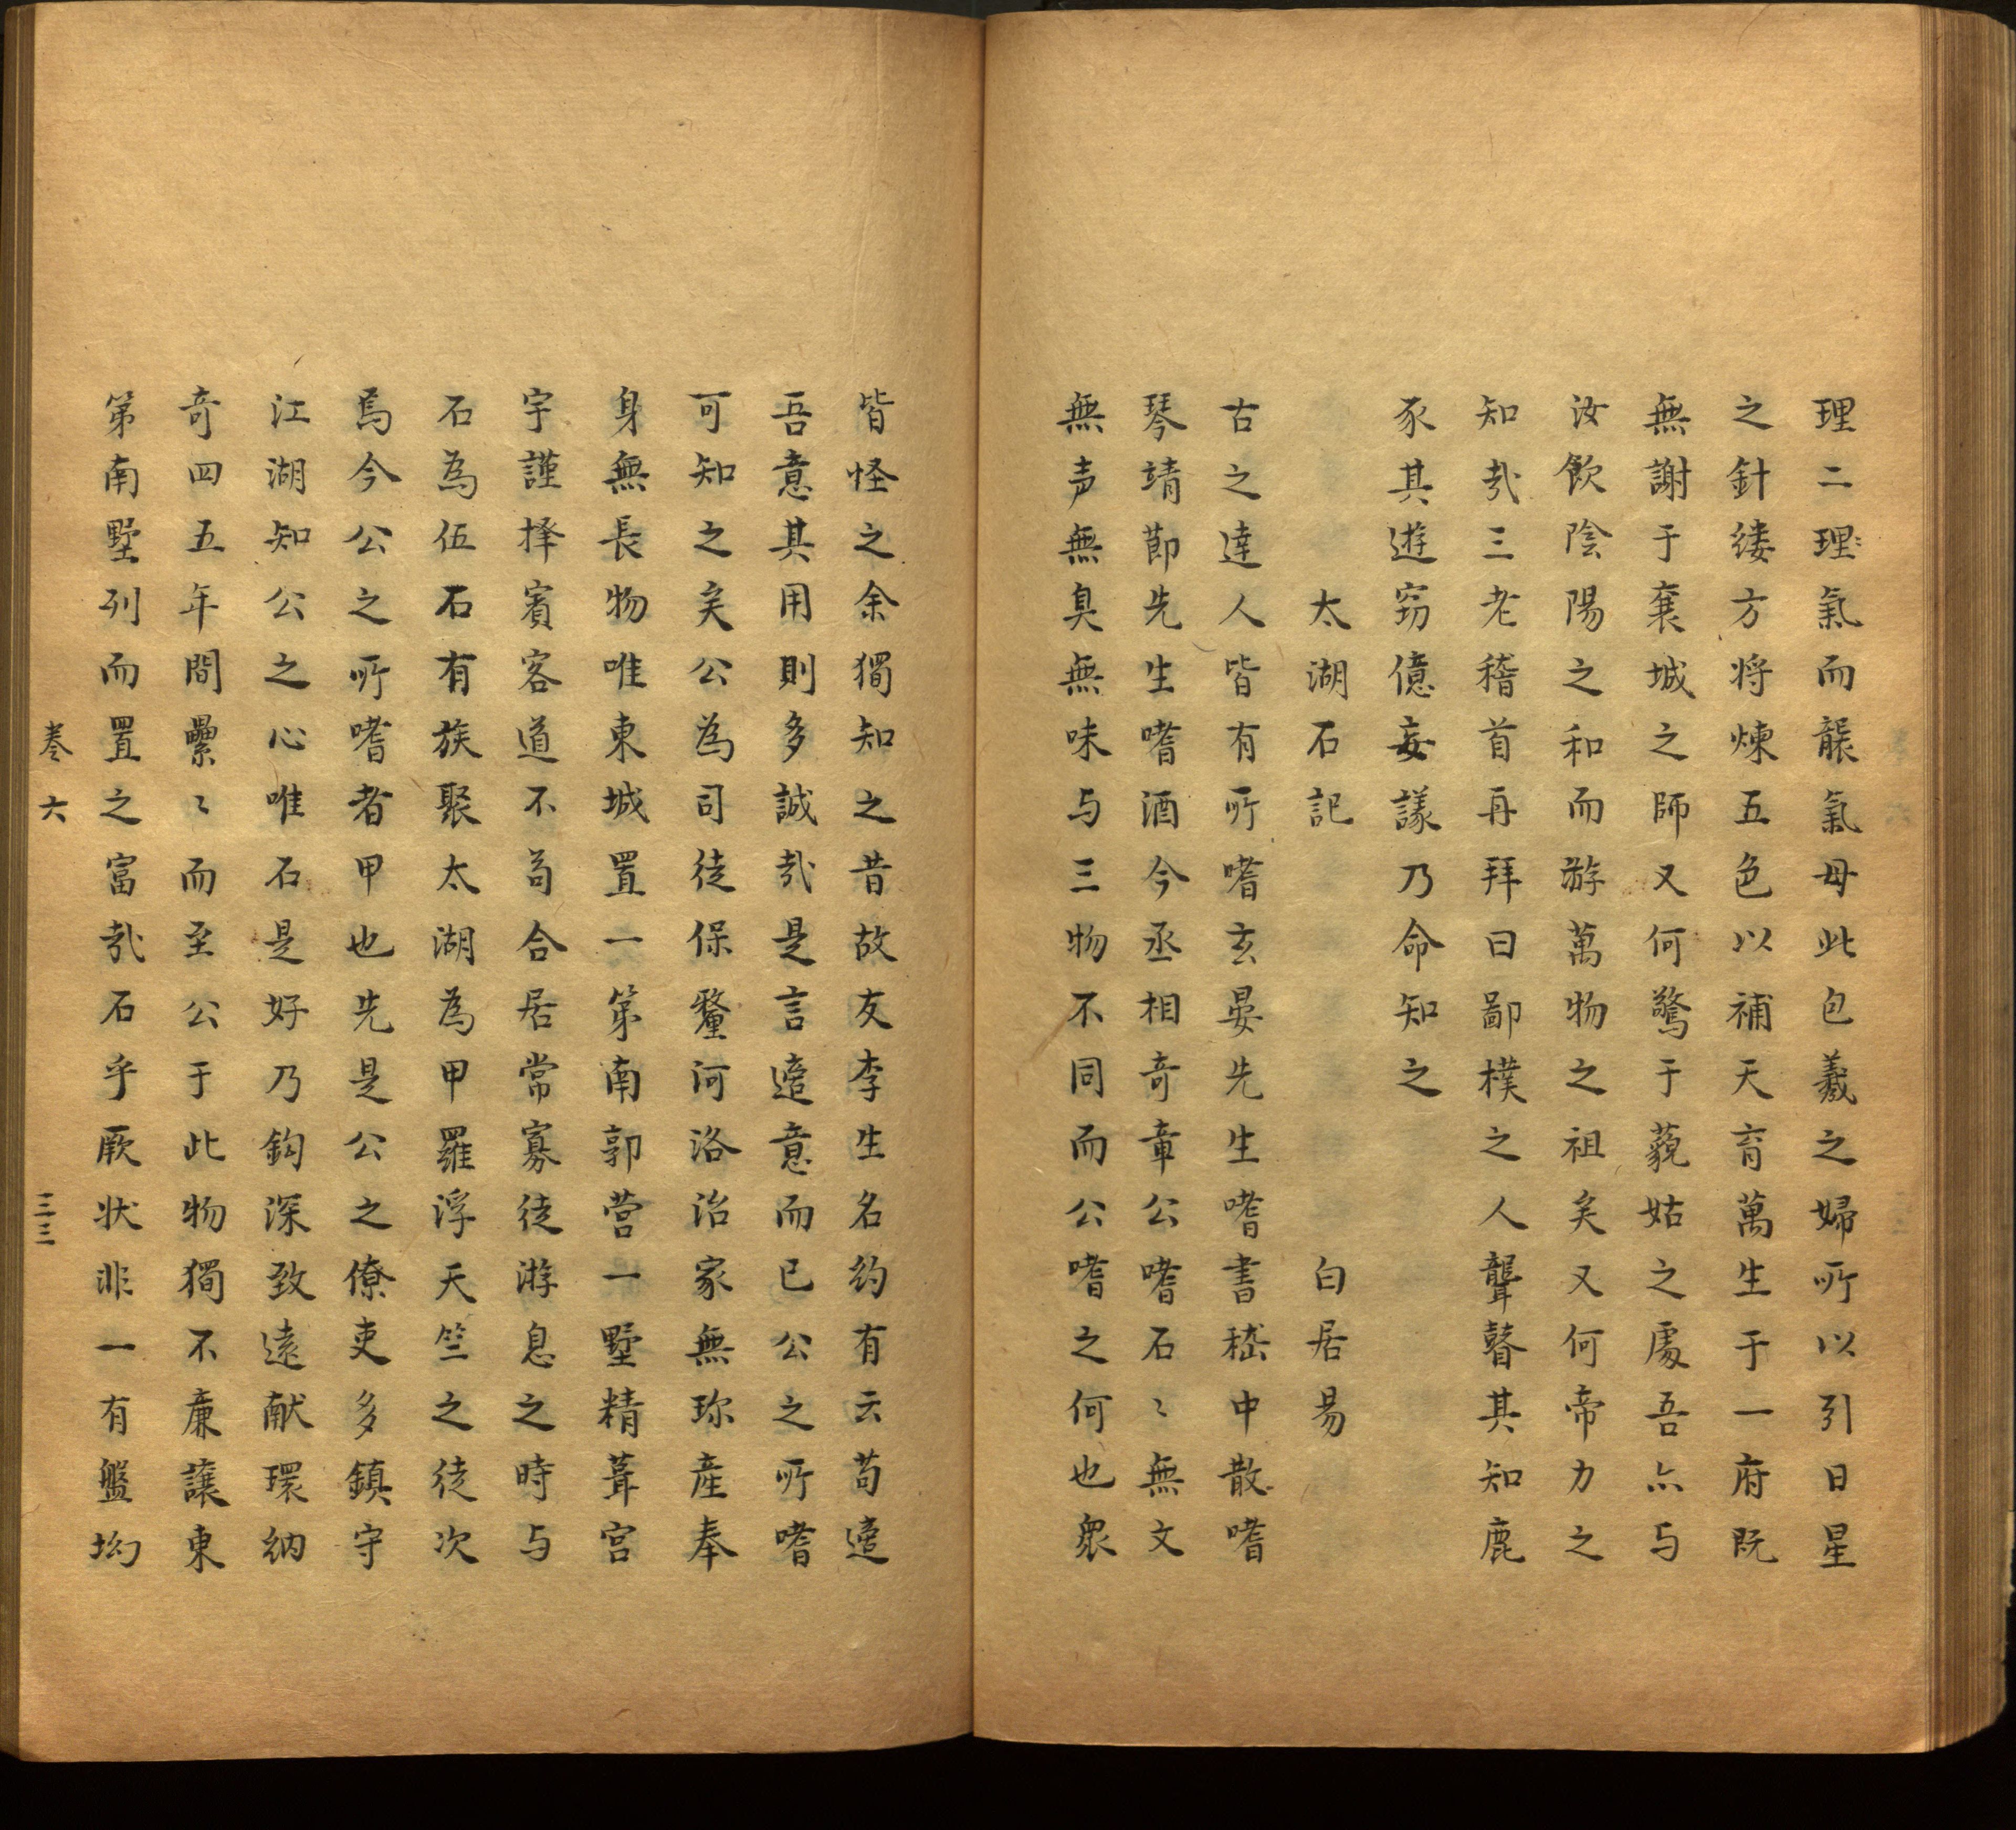 理二理氣而襲氣母此包羲之婦所以引日星
之針縷方将煉五色以補天育萬生于一府既
無謝于襄城之師又何驚于藐姑之處吾亦与
汝飲陰陽之和而游萬物之祖矣又何帝力之
知㢤三老稽首再拜曰鄙樸之人聾瞽其知鹿
豕其遊窃億妄議乃命知之
太湖石記 白居易
古之達人皆有所嗜玄晏先生嗜書嵇中散嗜
琴靖節先生嗜酒今丞相奇章公嗜石〻無文
無声無臭無味与三物不同而公嗜之何也衆
皆怪之余獨知之昔故友李生名约有云苟適
吾意其用則多誠㢤是言適意而已公之所嗜
可知之矣公為司徒保釐河洛治家無珎產奉
身無長物唯東城置一第南郭营一墅精葺宫
宇謹择賓客道不苟合居常寡徒游息之時与
石為伍石有族聚太湖為甲羅浮天竺之徒次
焉今公之所嗜者甲也先是公之僚吏多鎮守
江湖知公之心唯石是好乃鈎深致遠献環納
奇四五年間纍〻而至公于此物獨不廉讓東
第南墅列而置之富㢤石乎厥状非一有盤坳
卷六 三三